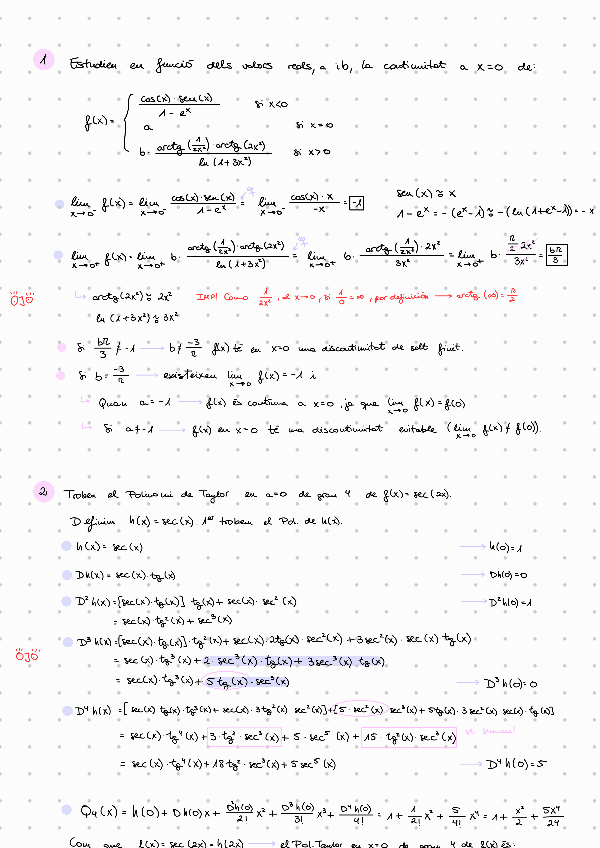 1 Estudieu en funció dels valors reals, a i b, la continuitat a x=0 de:
f(x) = { cos(x)·sen(x) / 1 - eˣ si x<0
a si x=0
b · arctg(1/2x²)·arctg(2x²) / ln(1+3x²) si x>0
lim x→0⁻ f(x) = lim x→0⁻ cos(x)·sen(x) / 1-eˣ = lim x→0⁻ cos(x)·x / -x = -1 sen(x) ≈ x
1-eˣ = -(eˣ-1) ≈ -(ln(1+eˣ-1)) = -x
lim x→0⁺ f(x) = lim x→0⁺ b · arctg(1/2x²)·arctg(2x²) / ln(1+3x²) = lim x→0⁺ b · arctg(1/2x²)·2x² / 3x² = lim x→0⁺ b · π/2 2x² / 3x² = bπ/3
OJO arctg(2x²) ≈ 2x² IMP! Como 1/2x², si x→0, si 1/0 = ∞, por definición → arctg(∞) = π/2
ln(1+3x²) ≈ 3x²
Si bπ/3 ≠ -1 → b ≠ -3/π f(x) té en x=0 una discontinuitat de salt finit.
Si b = -3/π → existeixen lim x→0 f(x) = -1 i
Quan a=-1 → f(x) és contínua a x=0, ja que lim x→0 f(x) = f(0)
Si a≠-1 → f(x) en x=0 té una discontinuitat evitable (lim x→0 f(x) ≠ f(0)).
2 Trobeu el Polinomi de Taylor en a=0 de grau 4 de f(x) = sec(2x).
Definim h(x) = sec(x). 1er trobem el Pol. de h(x).
h(x) = sec(x) → h(0)=1
Dh(x) = sec(x)·tg(x) → Dh(0)=0
D²h(x) = [sec(x)·tg(x)] tg(x) + sec(x)·sec²(x) → D²h(0)=1
= sec(x)·tg²(x) + sec³(x)
D³h(x) = [sec(x)·tg(x)]·tg²(x) + sec(x)·2tg(x)·sec²(x) + 3sec²(x)·sec(x) tg(x)
OJO = sec(x)·tg³(x) + 2·sec³(x)·tg(x) + 3sec³(x) tg(x)
= sec(x)·tg³(x) + 5tg(x)·sec³(x) → D³h(0)=0
D⁴h(x) = [sec(x) tg(x)·tg³(x) + sec(x)·3tg²(x) sec²(x)] + [5·sec²(x) sec³(x) + 5tg(x)·3sec²(x) sec(x)·tg(x)]
= sec(x)·tg⁴(x) + 3·tg²·sec³(x) + 5·sec⁵(x) + 15·tg²(x)·sec³(x) se sumen!
= sec(x)·tg⁴(x) + 18tg²·sec³(x) + 5sec⁵(x) → D⁴h(0)=5
Q₄(x) = h(0) + Dh(0)x + D²h(0)/2! x² + D³h(0)/3! x³ + D⁴h(0)/4! = 1 + 1/2! x² + 5/4! x⁴ = 1 + x²/2 + 5x⁴/24
Com que f(x) = sec(2x) = h(2x) → el Pol. Taylor en x=0 de grau 4 de f(x) és: